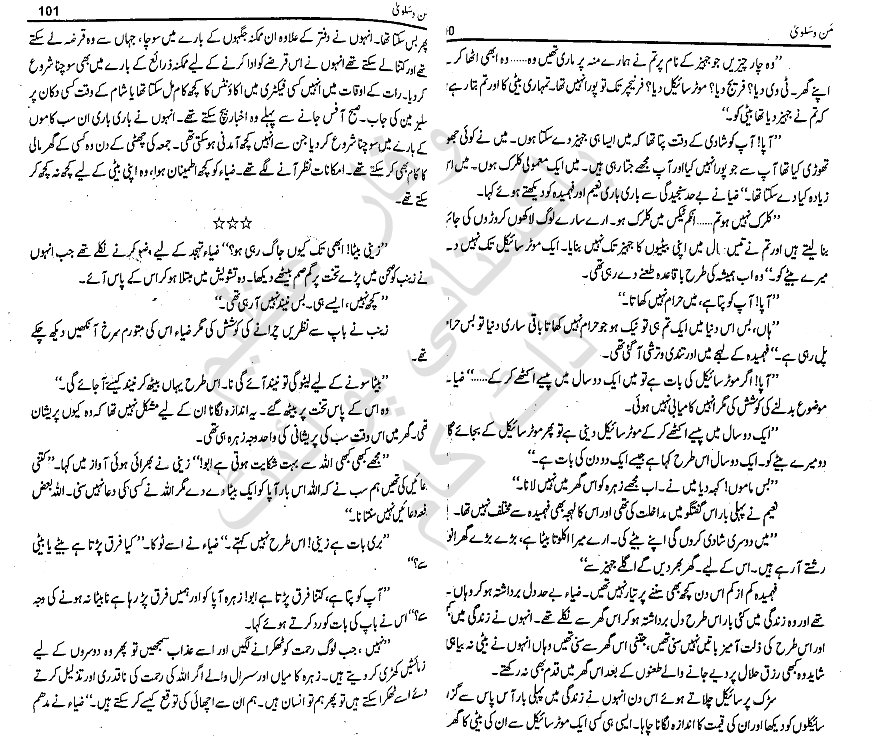 مَن و سَلویٰ
"وہ چار چیزیں جو جہیز کے نام پر تم نے ہمارے منہ پر ماری تھیں وہ...... وہ ابھی اٹھا کر
اپنے گھر۔ ٹی وی دیا؟ فریج دیا؟ موٹر سائیکل دیا؟ فرنیچر تک تو پورا نہیں تھا۔ تمہاری بیٹی کا اور تم بتا رہے
کہ تم نے جہیز دیا تھا بیٹی کو۔"
"آپا! آپ کو شادی کے وقت پتا تھا کہ میں ایسا ہی جہیز دے سکتا ہوں۔ میں نے کوئی جھو
تھوڑی کیا تھا آپ سے جو پورا نہیں کیا اور آپ مجھے جتا رہی ہیں۔ میں ایک معمولی کلرک ہوں۔ میں اس
زیادہ کیا دے سکتا تھا۔" ضیا نے بے حد سنجیدگی سے باری باری نعیم اور فہمیدہ کو دیکھتے ہوئے کہا۔
"کلرک نہیں ہو تم...... انکم ٹیکس میں کلرک ہو۔ ارے سارے لوگ لاکھوں کروڑوں کی جائ
بنا لیتے ہیں اور تم نے تیس سال میں اپنی بیٹیوں کا جہیز تک نہیں بنایا۔ ایک موٹر سائیکل تک نہیں د
میرے بیٹے کو۔" وہ اب ہمیشہ کی طرح باقاعدہ طعنے دے رہی تھی۔
"آپا! آپ کو پتا ہے، میں حرام نہیں کھاتا۔"
"ہاں، بس اس دنیا میں ایک تم ہی تو نیک ہو جو حرام نہیں کھاتا باقی ساری دنیا تو بس حرا
پل رہی ہے۔" فہمیدہ کے لہجے میں اور تندی و ترشی آ گئی تھی۔
"آپا! اگر موٹر سائیکل کی بات ہے تو میں ایک دو سال میں پیسے اکٹھے کر کے......" ضیا
موضوع بدلنے کی کوشش کی مگر انہیں کامیابی نہیں ہوئی۔
"ایک دو سال میں پیسے اکٹھے کر کے موٹر سائیکل دینی ہے تو پھر موٹر سائیکل کے بجائے گا
دو میرے بیٹے کو۔ ایک دو سال اس طرح کہا ہے جیسے ایک دو دن کی بات ہے۔"
"بس ماموں! کہہ دیا میں نے۔ اب مجھے زہرہ کو اس گھر میں نہیں لانا۔"
نعیم نے پہلی بار اس گفتگو میں مداخلت کی تھی اور اس کا لہجہ بھی فہمیدہ سے مختلف نہیں تھا۔
"میں دوسری شادی کروں گی اپنے بیٹے کی۔ ارے میرا اکلوتا بیٹا ہے، بڑے بڑے گھرانو
رشتے آ رہے ہیں۔ اس کے لیے۔ گھر بھر دیں گے اگلے جہیز سے"
فہمیدہ کم از کم اس دن کچھ بھی سننے پر تیار نہیں تھیں۔ ضیاء بے حد دل برداشتہ ہو کر وہاں
تھے اور وہ زندگی میں کئی بار اس طرح دل برداشتہ ہو کر اس گھر سے نکلے تھے۔ انہوں نے زندگی میں
اور اس طرح کی ذلت آمیز باتیں نہیں سنی تھیں، جتنی اس گھر سے سنی تھیں وہاں انہوں نے بیٹی نہ بیاہی
شاید وہ کبھی رزق حلال پر دیے جانے والے طعنوں کے بعد اس گھر میں قدم بھی نہ رکھتے۔
سڑک پر سائیکل چلاتے ہوئے اس دن انہوں نے زندگی میں پہلی بار آس پاس سے گزا
سائیکلوں کو دیکھا اور ان کی قیمت کا اندازہ لگانا چاہا۔ ایسی ہی کسی ایک موٹر سائیکل سے ان کی بیٹی کا گھر
ن و سَلویٰ 101
پھر بس سکتا تھا۔ انہوں نے دفتر کے علاوہ ان ممکنہ جگہوں کے بارے میں سوچا، جہاں سے وہ قرضہ لے سکتے
تھے اور کتنا لے سکتے تھے انہوں نے اس قرضے کو ادا کرنے کے لیے ممکنہ ذرائع کے بارے میں بھی سوچنا شروع
کر دیا۔ رات کے اوقات میں انہیں کسی فیکٹری میں اکاؤنٹس کا کچھ کام مل سکتا تھا یا شام کے وقت کسی دکان پر
سیلز مین کی جاب۔ صبح آفس جانے سے پہلے وہ اخبار بیچ سکتے تھے۔ انہوں نے باری باری ان سب کاموں
کے بارے میں سوچنا شروع کر دیا جن سے انہیں کچھ آمدنی ہو سکتی تھی۔ جمعہ کی چھٹی کے دن وہ کسی کے گھر مالی
کا کام بھی کر سکتے تھے۔ امکانات نظر آنے لگے تھے۔ ضیاء کو کچھ اطمینان ہوا، وہ اپنی بیٹی کے لیے کچھ نہ کچھ کر
سکتے تھے۔
☆☆☆
"زینی بیٹا! ابھی تک کیوں جاگ رہی ہو؟" ضیاء تہجد کے لیے وضو کرنے نکلے تھے جب انہوں
نے زینب کو صحن میں پڑے تخت پر گم صم بیٹھے دیکھا۔ وہ تشویش میں مبتلا ہو کر اس کے پاس آئے۔
"کچھ نہیں، ایسے ہی۔ بس نیند نہیں آ رہی تھی۔"
زینب نے باپ سے نظریں چرانے کی کوشش کی مگر ضیاء اس کی متورم سرخ آنکھیں دیکھ چکے
تھے۔
"بیٹا سونے کے لیے لیٹو گی تو نیند آئے گی نا۔ اس طرح یہاں بیٹھ کر نیند کیسے آ جائے گی۔"
وہ اس کے پاس تخت پر بیٹھ گئے۔ یہ اندازہ لگانا ان کے لیے مشکل نہیں تھا کہ وہ کیوں پریشان
تھی۔ گھر میں اس وقت سب کی پریشانی کی واحد وجہ زہرہ ہی تھی۔
"مجھے کبھی کبھی اللہ سے بہت شکایت ہوتی ہے ابو!" زینی نے بھرائی ہوئی آواز میں کہا۔ "کتنی
عائیں کی تھیں ہم سب نے کہ اللہ اس بار آپا کو ایک بیٹا دے دے مگر اللہ نے کسی کی دعا نہیں سنی۔ اللہ بعض
فعہ دعائیں نہیں سنتا نا۔"
"بری بات ہے زینی! اس طرح نہیں کہتے۔" ضیاء نے اسے ٹوکا۔ "کیا فرق پڑتا ہے بیٹے یا بیٹی
سے؟"
"آپ کو پتا ہے، کتنا فرق پڑتا ہے ابو! زہرہ آپا کو اور ہمیں فرق پڑ رہا ہے نا بیٹا نہ ہونے کی وجہ
سے؟" اس نے باپ کی بات کو رد کرتے ہوئے کہا۔
"نہیں، جب لوگ رحمت کو ٹھکرانے لگیں اور اسے عذاب سمجھیں تو پھر وہ دوسروں کے لیے
زمائشیں کھڑی کر دیتے ہیں۔ زہرہ کا میاں اور سسرال والے اگر اللہ کی رحمت کی ناقدری اور تذلیل کرتے
وئے اسے ٹھکرا سکتے ہیں تو پھر ہم تو انسان ہیں۔ ہم ان سے اچھائی کی توقع کیسے کر سکتے ہیں۔" ضیاء نے مدھم